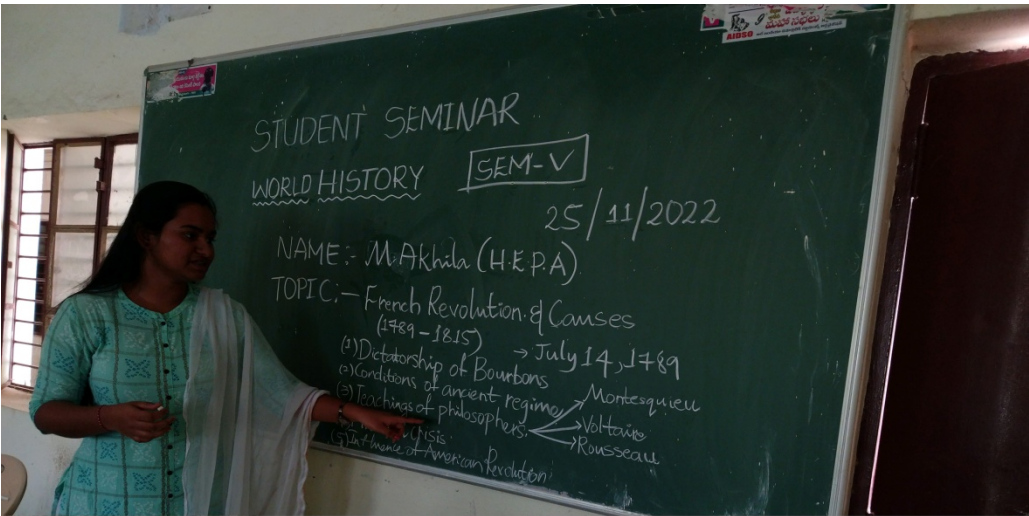 9
మహా సభలు
AIDSO
STUDENT SEMINAR
WORLD HISTORY SEM-V
25/11/2022
NAME:- M.Akhila (H.E.P.A)
TOPIC:- French Revolution & Causes
(1789-1815) → July 14, 1789
(1) Dictatorship of Bourbons
(2) Conditions of ancient regime
(3) Teachings of philosophers. Montesquieu
Voltaire
Rousseau
(5) Influence of American Revolution